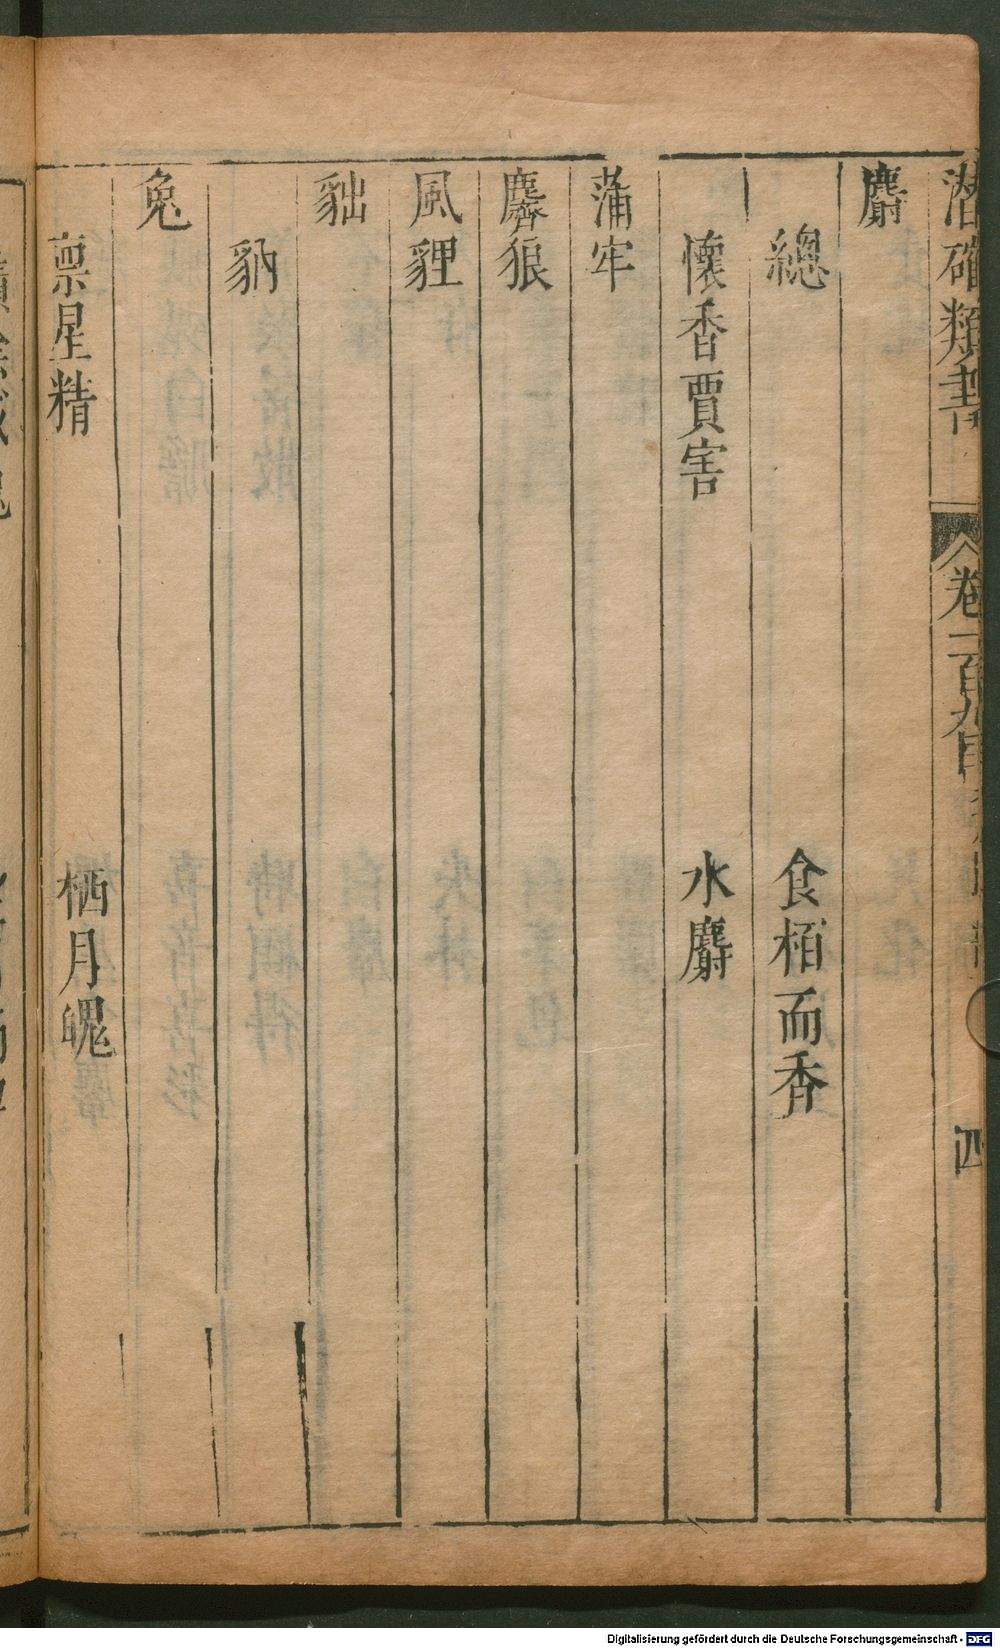 潛確類書 卷一百九 四
麝
總 食栢而香
懷香賈害 水麝
蒲牢
麡狼
風貍
貀
豽
兔
禀星精 栖月魄
Digitalisierung gefördert durch die Deutsche Forschungsgemeinschaft - DFG